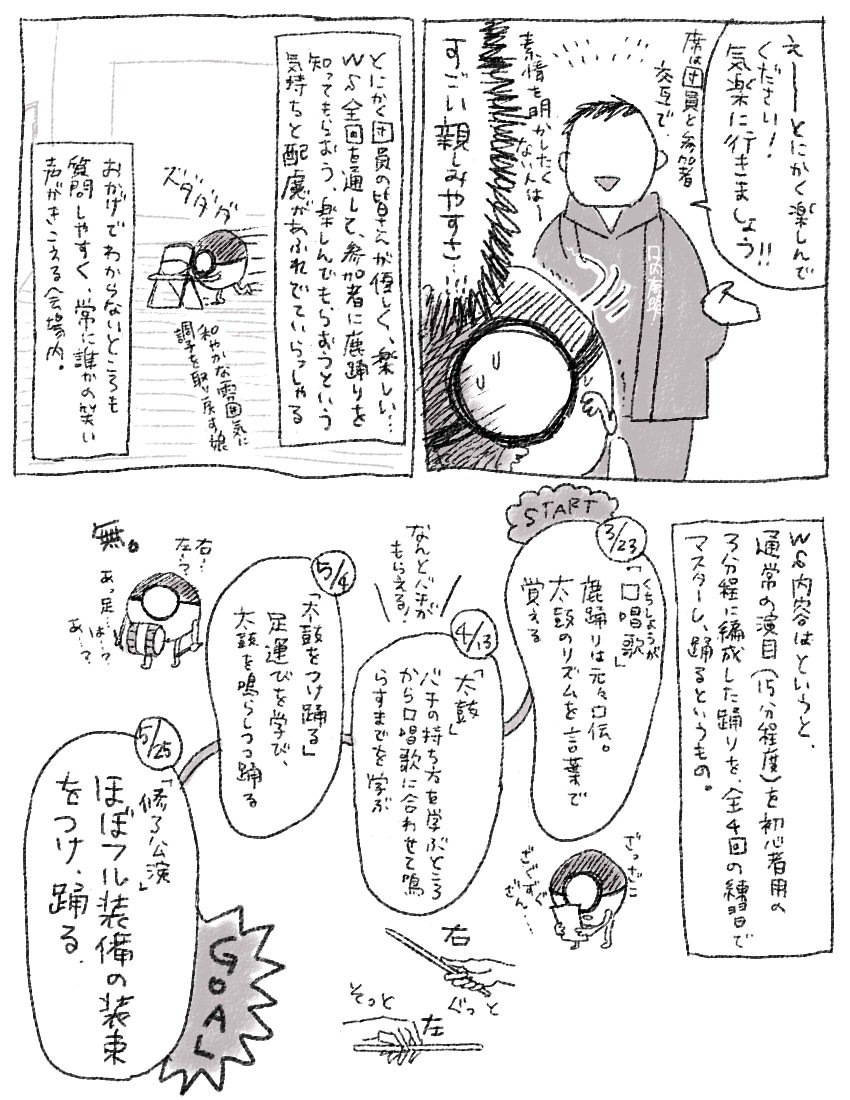 えーーとにかく楽しんで
ください!
気楽に行きましょう!!
席は団員と参加者
交互で
素情を明かしたく
ない人はー
すごい親しみやすさ…!
とにかく団員の皆さんが優しく、楽しい…
WS全回を通して、参加者に鹿踊りを
知ってもらおう、楽しんでもらおうという
気持ちと配慮があふれでていらっしゃる
ズダダダ
和やかな雰囲気に
調子を取り戻す娘
おかげでわからないところも
質問しやすく、常に誰かの笑い
声がきこえる会場内。
WS内容はというと、
通常の演目(15分程度)を初心者用の
3分程に編成した踊りを、全4回の練習で
マスターし、踊るというもの。
START
3/23
くちしょうが
「口唱歌」
鹿踊りは元々口伝。
太鼓のリズムを言葉で
覚える
ざっざこ
ざぐずぐ
ざん…
なんとバチが
もらえる!
4/13
「太鼓」
バチの持ち方を学ぶところ
から口唱歌に合わせて鳴
らすまでを学ぶ
右
ぐっと
そっと
左
5/4
「太鼓をつけ踊る」
足運びを学び、
太鼓を鳴らしつつ踊る
右…?
左…?
無。
あっ足…
は…?
あ…?
5/25
「修了公演」
ほぼフル装備の装束
をつけ、踊る。
GOAL